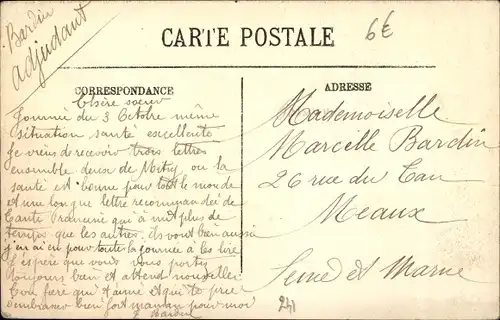 Bardin
adjudant
6€
CARTE POSTALE
CORRESPONDANCE
ADRESSE
Chère soeur
Journée du 3 Octobre même
situation santé escellente
Je viens de recevoir trois lettres
ensemble deux de Mitry ou la
santé est bonne pour tout le monde
et une longue lettre recommandée de
tante Francine qui a mit plus de
temps que les autres. ils vont bien aussi
j'en ai eu pour toute la journée à les lire
J'espère que vous vous portez
toujours bien et attend nouvelles
Ton frère qui t'aime et qui te prie
embrasser bien fort maman pour moi
Bardin
Mademoiselle
Marcelle Bardin
26 rue du Tan
Meaux
Seine et Marne
241